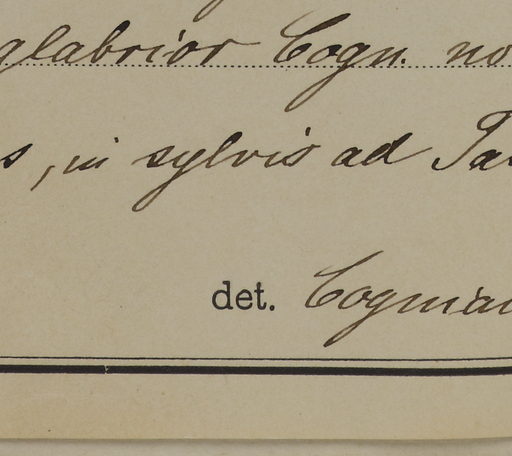 glabrior Cogn. no
s, in sylvis ad Ta
det. Cogniau